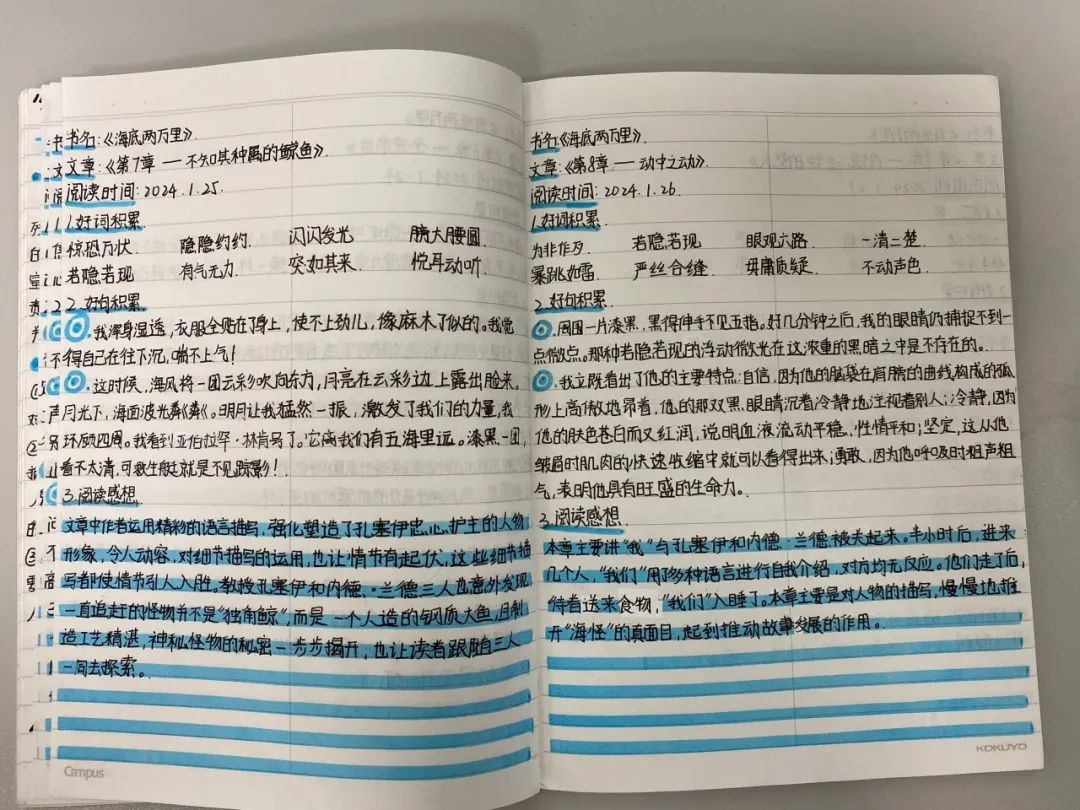 书名:《海底两万里》.
文章:《第7章 — 不知其种属的鲸鱼》.
阅读时间: 2024.1.25.
1.好词积累
惊恐万状 隐隐约约. 闪闪发光 膀大腰圆.
若隐若现 有气无力. 突如其来. 悦耳动听.
2.好句积累.
①.我浑身湿透,衣服全贴在身上,使不上劲儿,像麻木了似的。我觉
得自己在往下沉,喘不上气!
②.这时候,海风将一团云彩吹向东方,月亮在云彩边上露出脸来。
月光下,海面波光粼粼。明月让我猛然一振,激发了我们的力量,我
环顾四周。我看到亚伯拉罕·林肯号了。它离我们有五海里远。漆黑一团,
看不太清,可救生艇就是不见踪影!
3.阅读感想.
文章中作者运用精彩的语言描写,强化塑造了孔塞伊忠心护主的人物
形象,令人动容,对细节描写的运用,也让情节有起伏,这些细节描
写都使情节引人入胜。教授孔塞伊和内德.·兰德三人也意外发现,
一直追赶的怪物并不是“独角鲸”,而是一个人造的钢质大鱼,且制
造工艺精湛,神秘怪物的秘密一步步揭开,也让读者跟随三人
一同去探索。
Campus
书名:《海底两万里》.
文章:《第8章 — 动中之动》.
阅读时间: 2024.1.26.
1.好词积累.
为非作歹 若隐若现 眼观六路. 一清二楚
暴跳如雷. 严丝合缝. 毋庸质疑. 不动声色.
2.好句积累
①.周围一片漆黑,黑得伸手不见五指。好几分钟之后,我的眼睛仍捕捉不到一
点微点。那种若隐若现的浮动微光在这浓重的黑暗之中是不存在的。
②.我立既看出了他的主要特点:自信,因为他的脑袋在肩膀的曲线构成的弧
形上高傲地昂着,他的那双黑眼睛沉着冷静地注视着别人;冷静,因为
他的肤色苍白而又红润,说明血液流动平稳,性情平和;坚定,这从他
皱眉时肌肉的快速收缩中就可以看得出来;勇敢,因为他呼吸时粗声粗
气,表明他具有旺盛的生命力。
3.阅读感想.
本章主要讲“我”与孔塞伊和内德·兰德被关起来。半小时后,进来
几个人,“我们”用了多种语言进行自我介绍,对方均无反应。他们走了后,
侍者送来食物,“我们”入睡了。本章主要是对人物的描写,慢慢地推
开“海怪”的真面目,起到推动故事发展的作用。
KOKUYO